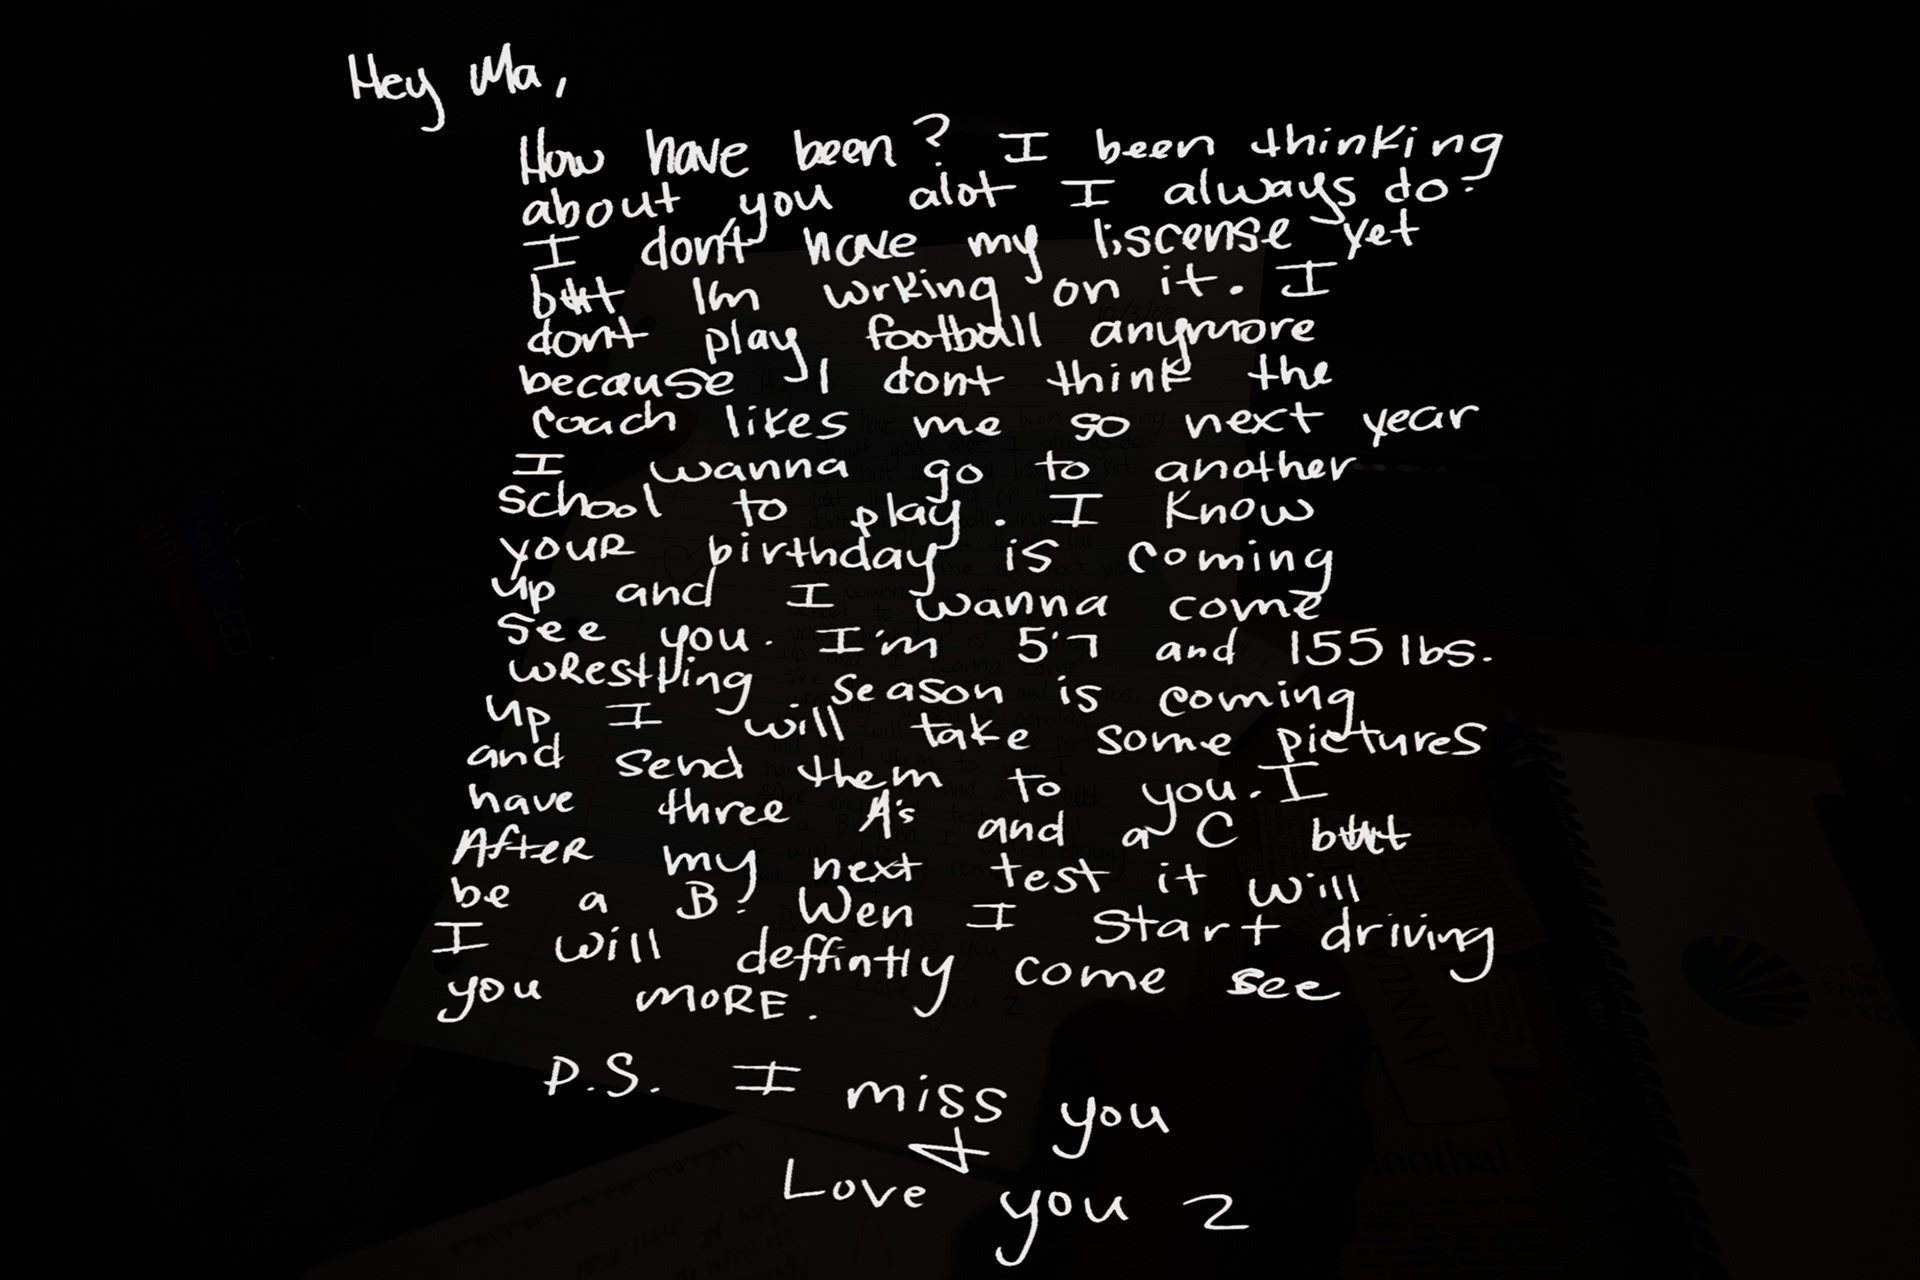 Hey Ma,
How have been? I been thinking
about you alot I always do!
I don't have my liscense yet
but Im wrking on it. I
dont play football anymore
because I dont think the
coach likes me so next year
I wanna go to another
school to play. I know
youR birthday is coming
up and I wanna come
see you. I'm 5'7 and 155 lbs.
wRestling season is coming
up I will take some pictures
and send them to you. I
have three A's and a C but
AfteR my next test it will
be a B! Wen I start driving
I will deffintly come see
you moRE.
P.S. I miss you
+
Love you 2